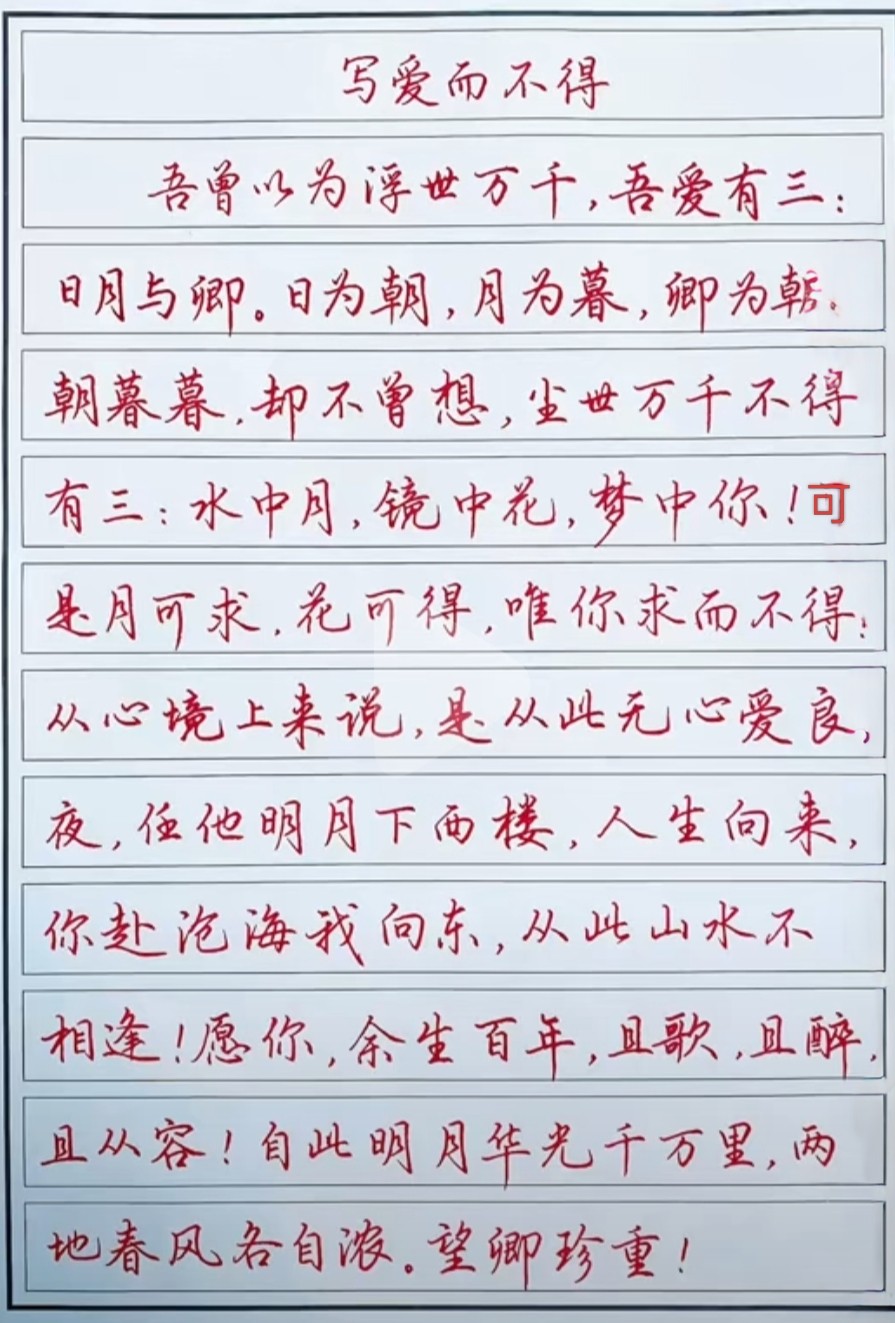 写爱而不得
吾曾以为浮世万千,吾爱有三:
日月与卿。日为朝,月为暮,卿为朝.
朝暮暮,却不曾想,尘世万千不得
有三:水中月,镜中花,梦中你!可
是月可求,花可得,唯你求而不得;
从心境上来说,是从此无心爱良,
夜,任他明月下西楼,人生向来,
你赴沧海我向东,从此山水不
相逢!愿你,余生百年,且歌,且醉,
且从容!自此明月华光千万里,两
地春风各自浓。望卿珍重!